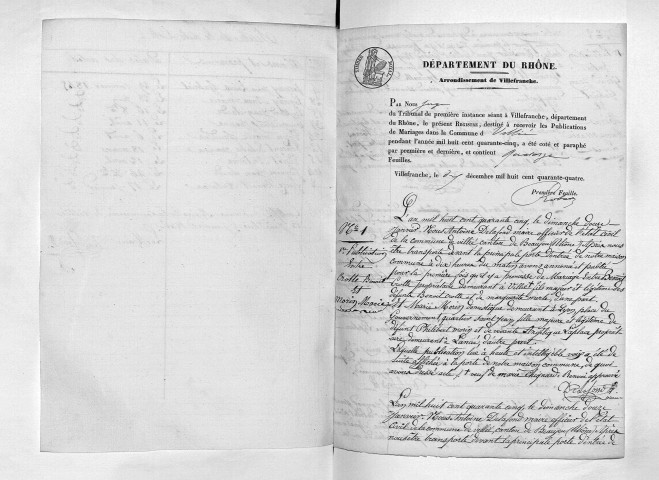 DÉPARTEMENT DU RHÔNE.
Arrondissement de Villefranche.
PAR NOUS Juge
du Tribunal de première instance séant à Villefranche, département
du Rhône, le présent REGISTRE, destiné à recevoir les Publications
de Mariages dans la Commune d Villié
pendant l'année mil huit cent quarante-cinq, a été coté et paraphé
par première et dernière, et contient
Feuilles.
Villefranche, le décembre mil huit cent quarante-quatre.
Première Feuille.
N° 1
1re Publication
Entre
Crotte Benoit
Et
Moiry Marie
L'an mil huit cent quarante cinq, le dimanche douze
Janvier Nous Antoine Delafond maire officier de l'état civil
de la commune de villié canton de Beaujeu Rhône, nous
être transporté devant la principale porte d'entrée de notre maison
commune à dix heures du matin, avons annoncé et publié
pour la première fois qu'il y a promesse de Mariage Entre Benoit
Crotte propriétaire demeurant à Villié fils majeur et légitime de
défunt Benoit Crotte et de marguerite d'une part.
Et Marie Moiry domestique demeurant à Lyon place du
Gouvernement quartier Saint Jean fille majeure et légitime de
défunt Philibert moiry et de vivante Laplace propriét
aire demeurant à Lancié, d'autre part.
Laquelle publication lue à haute et intelligible voix a été de
suite affichée à la porte de notre maison commune, de quoi
avons dressé acte
Delafond
L'an mil huit cent quarante cinq, le dimanche douze
Janvier Nous Antoine Delafond maire officier de l'état
Civil de la commune de villié, canton de Beaujeu Rhône
nous être transporté devant la principale porte d'entrée de